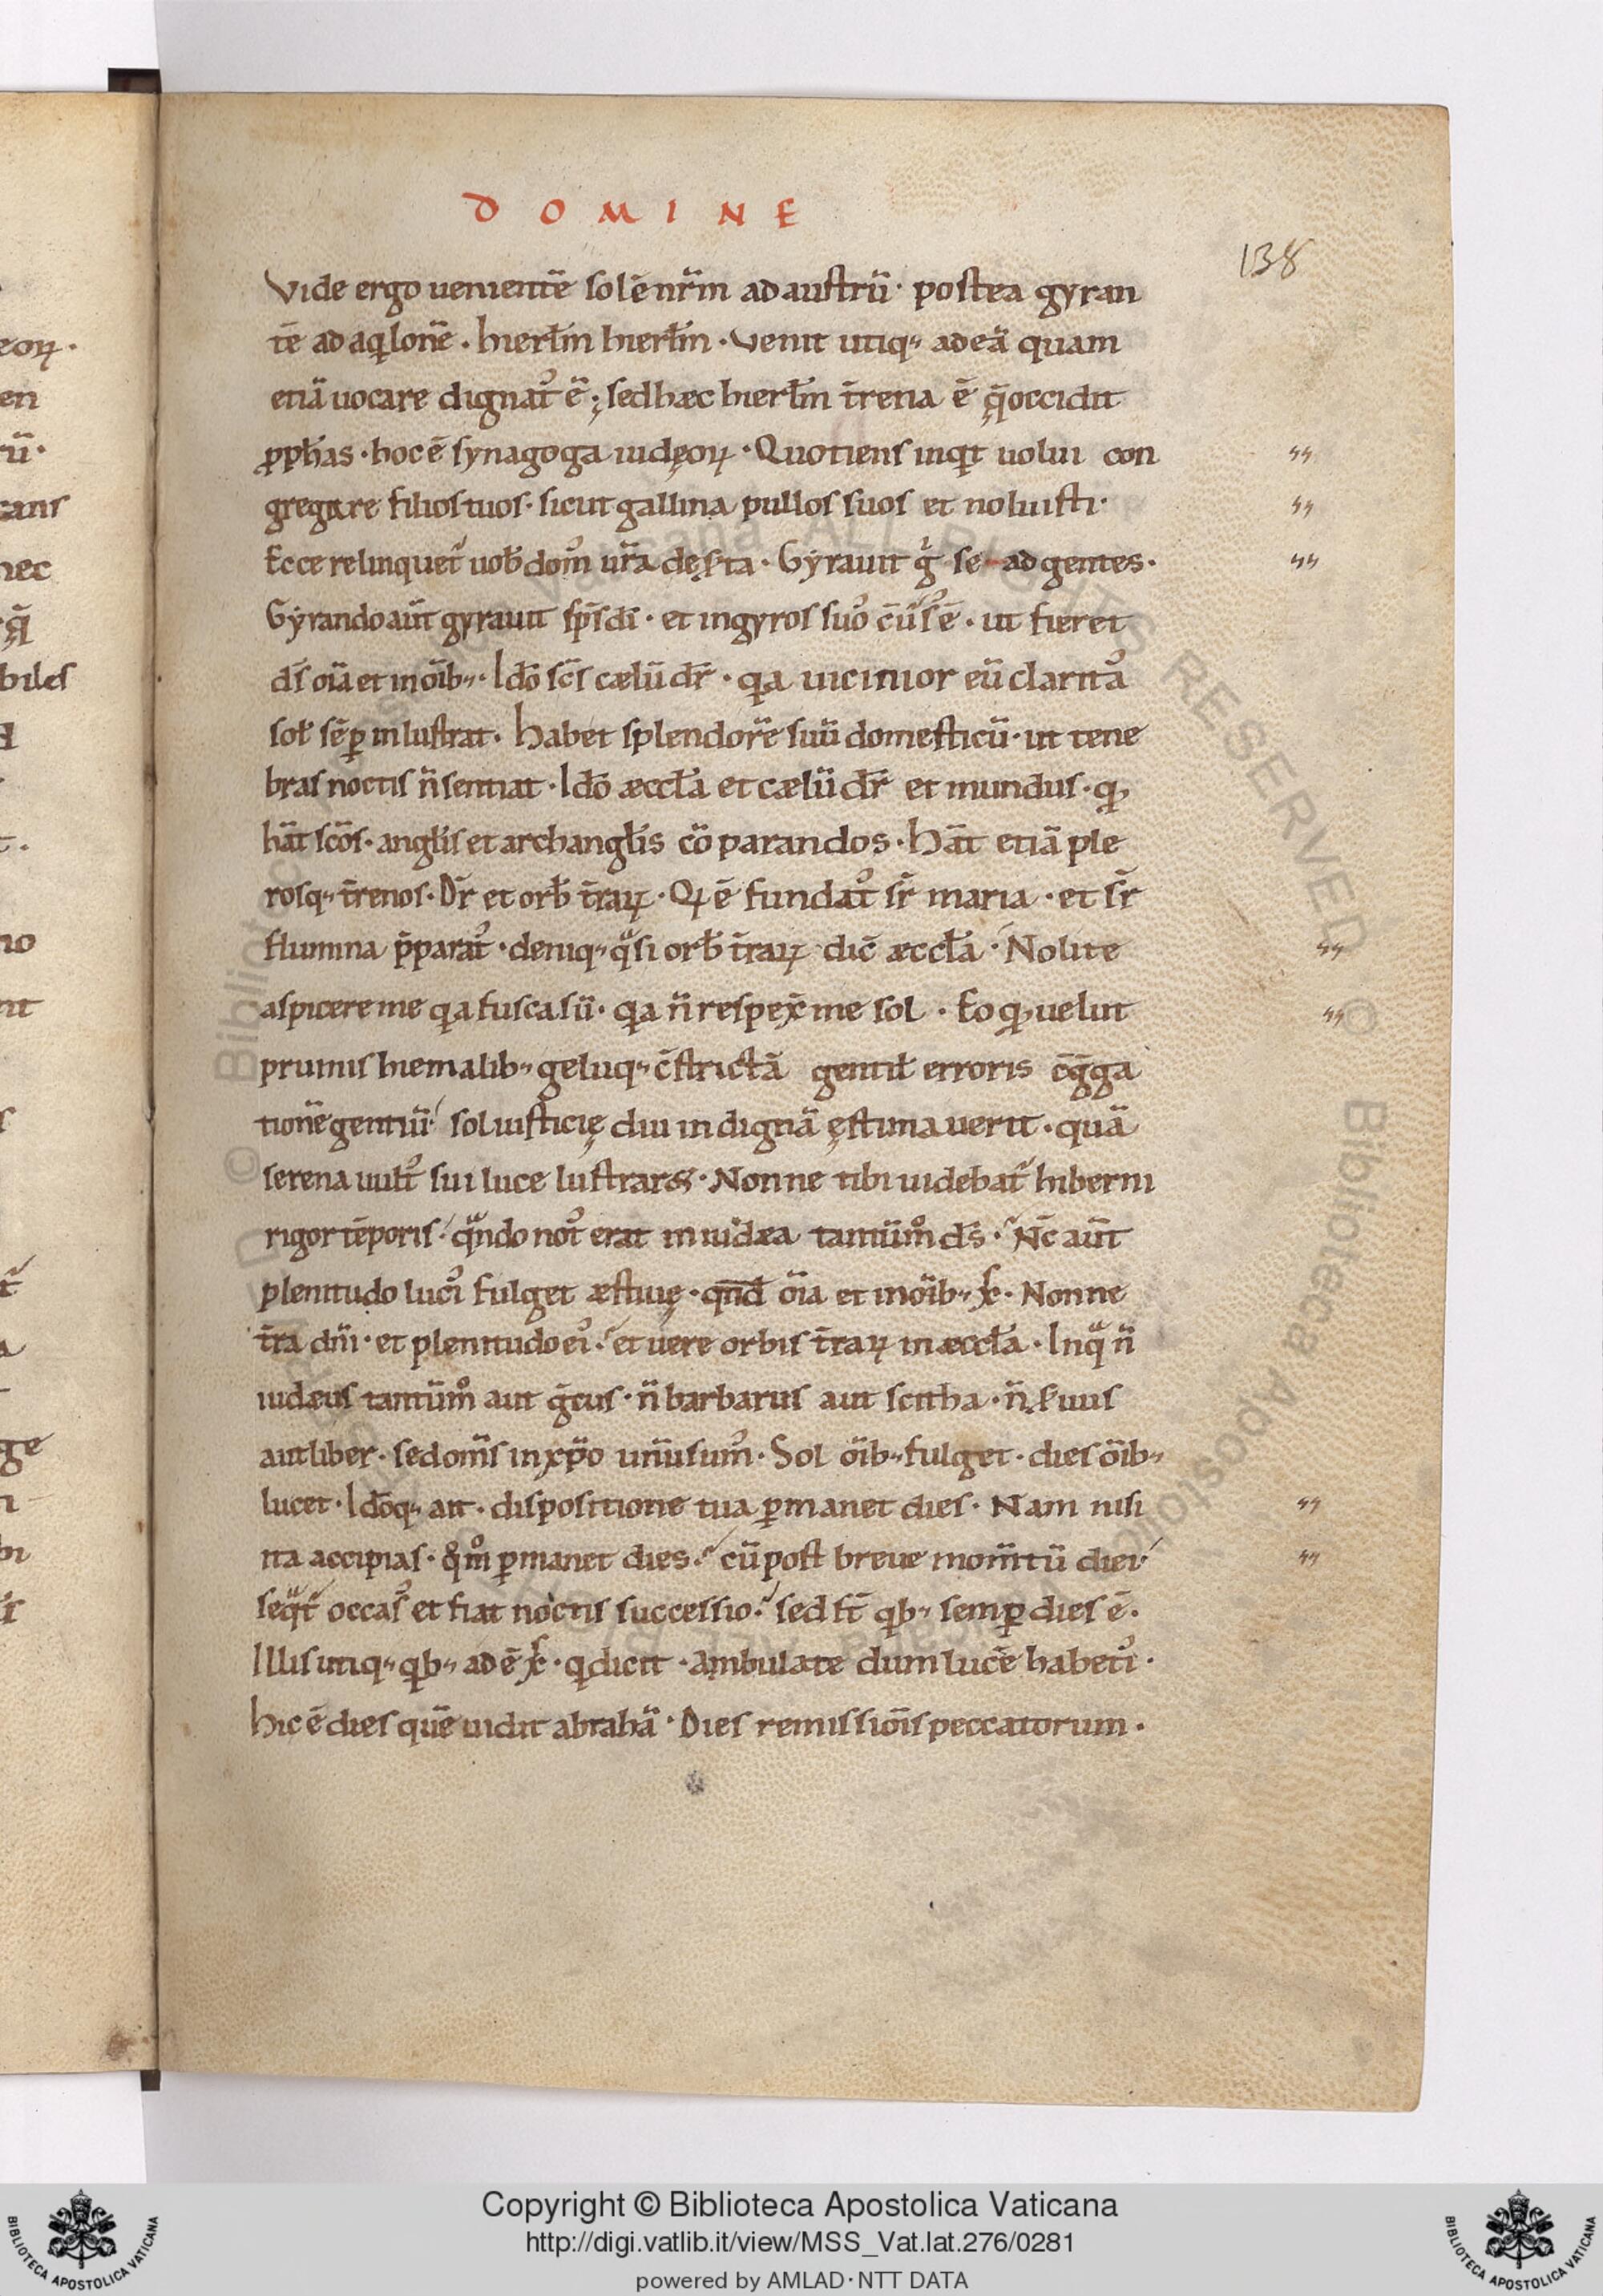 D O M I N E
138
Vide ergo uenientē solē nr̄m ad austrū· postea gyran
tē ad aq̇lonē · hierłm hierłm · Venit utiq; ad eā quam
etiā uocare dignat᷒ ē ; sed hæc hierłm t̄rena ē q̄ occidit
p̄pħas · hoc ē synagoga iudęoꝝ · Quotiens inqͥt uolui con
gregare filios tuos· sicut gallina pullos suos et noluisti·
Ecce relinquet᷑ uob̄ dom᷒ ur̄a deserta · Gẏrauit gͦ se ad gentes·
Gẏrando aūt gyrauit sp̄s dī · et in gyros suos c̄uersus ē · ut fieret
ds̄ oīa et in oīb; · Idō sc̄s cælū dr̄ · qͥa uicinior eū claritas
solˀ sēꝑ inlustrat· habet splendorē suū domesticū· ut tene
bras noctis n̄ sentiat · Idō æccłа et cælū dr̄ et mundus· qͥ
hāt sc̄os· angłis et archangłis cōparandos · hāt etiā ple
rosq; t̄renos· Dr̄ et orb̄ t̄raꝝ · Qͥ ē fundat᷒ sr̄ maria · et sr̄
flumina p̄parat᷒ · deniq; qͣsi orb̄ t̄raꝝ dic̄ æccła · Nolite
aspicere me qͥa fusca sū · qͥa n̄ respex̄ me sol · Eo qͩ uelut
pruinis hiemalib; geluq; c̄strictā gentił erroris c̄ḡga
tionē gentiū sol iusticię diu indignā ęstimauerit · quā
serena uult᷒ sui luce lustraret · Nonne tibi uidebat᷑ hiberni
rigor tēporis · qͣndo not᷒ erat in iudæa tantūmͦ ds̄ · Nc̄ aūt
plenitudo luci᷒ fulget æstiuę · qn̄d oīa et in oīb; xc̄ · Nonne
t̄ra dn̄i · et plenitudo ei᷒ · et uere orbis t̄raꝝ in æccła · In qͣ n̄
iudæus tantūmͦ aut ḡcus · n̄ barbarus aut scitha · n̄ seruus
aut liber · sed om̄s in xp̄o unū sum᷒ · Sol oīb; fulget · dies oīb;
lucet · Idōq; ait · dispositione tua ꝑmanet dies · Nam nisi
ita accipias · qͦmͦ ꝑmanet dies · cū post breue mom̄tū diei
seqͣt᷑ occas᷒ et fiat noctis successio · sed st̄ qͥb; semꝑ dies ē ·
Illis utiq; qͥb; adē xc̄ · qͥ dicit · Ambulate dum lucē habeti᷒ ·
hic ē dies quē uidit abrahā · Dies remissiōis peccatorum ·
Copyright © Biblioteca Apostolica Vaticana
http://digi.vatlib.it/view/MSS_Vat.lat.276/0281
powered by AMLAD·NTT DATA